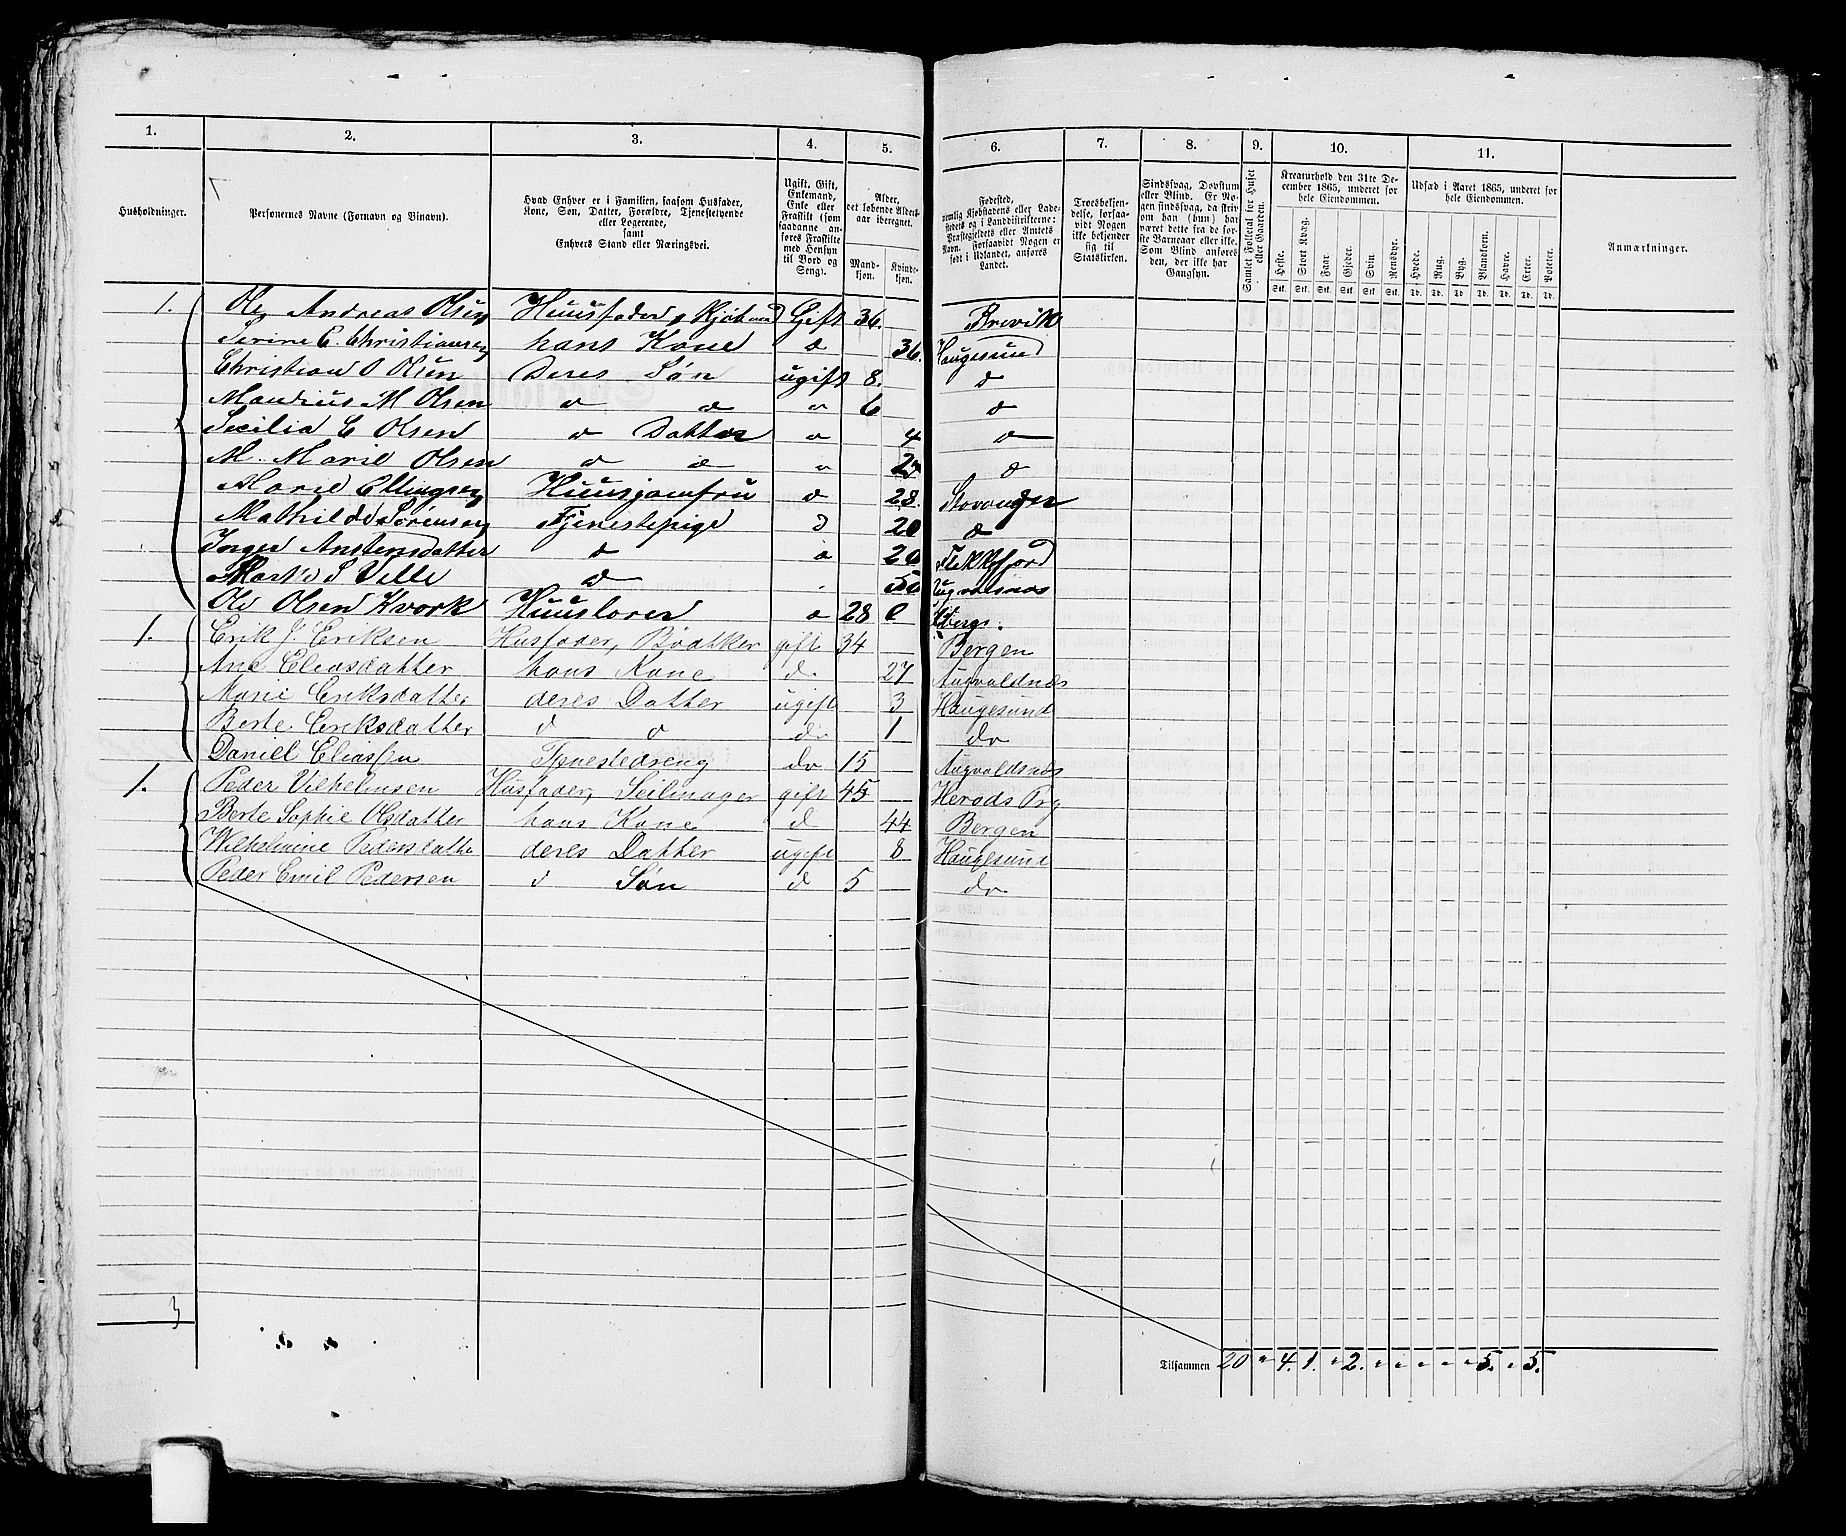 1. 2. 3. 4. 5. 6. 7. 8. 9. 10. 11.
Husholdninger.
Personernes Navne (Fornavn og Binavn).
Hvad Enhver er i Familien, saasom Husfader,
Kone, Søn, Datter, Forældre, Tjenestetyende
eller Logerende,
samt
Enhvers Stand eller Næringsvei.
Ugift, Gift,
Enkemand,
Enke eller
Fraskilt (som
saadanne an-
føres Fraskilte
med Hensyn
til Bord og
Seng).
Alder,
det løbende Alders-
aar iberegnet.
Mand-
kjøn.
Kvinde-
kjøn.
Fødested,
nemlig Kjøbstadens eller Lade-
stedets og i Landdistrikterne:
Præstegjeldets eller Amtets
Navn. Forsaavidt Nogen er
født i Udlandet, anføres
Landet.
Troesbekjen-
delse, forsaa-
vidt Nogen
ikke bekjender
sig til
Statskirken.
Sindssvag, Døvstum
eller Blind. Er No-
gen sindssvag, da skri-
ves om han (hun) har
været dette fra de før-
ste Barneaar eller ikke.
Som Blind anføres
den, der ikke har
Gangsyn.
Samlet Folketal for Huset
eller Gaarden.
Kreaturhold den 31te De-
cember 1865, underet for
hele Eiendommen.
Heste. Stort Kvæg. Faar. Gjeder. Svin. Rensdyr.
Stk. Stk. Stk. Stk. Stk. Stk.
Udsæd i Aaret 1865, underet for
hele Eiendommen.
Hvede. Rug. Byg. Blandkorn. Havre. Erter. Poteter.
Td. Td. Td. Td. Td. Td. Td.
Anmærkninger.
1. Ole Andreas Olsen Huusfader, Kjøbmd Gift 36. Brevik
Serine C. Christiansen hans Kone d 36. Haugesund
Christian O Olsen Deres Søn ugift 8. d
Mandius M Olsen d d d 6 d
Secilia C Olsen d Datter d 4 d
M. Marie Olsen d d d d
Marie Ellingsen Huusjomfru d 28. Stavanger
Mathilde Sørensen Tjenestepige d 20 d
Inger Anstensdatter d d 20 Flekkefjord
S Velle d 50
Ole Olsen Kvork Huuslærer d 28
1. Erik J. Eriksen Husfader, Bødtker gift 34 Bergen
Ane Eliasdatter hans Kone d. 27 Augvaldnæs
Marie Eriksdatter deres Datter ugift 3 Haugesund
Berte Eriksdatter d d do 1 do
Daniel Eliassen Tjenestedreng do 15 Augvaldsnæs
1. Peder Vilhelmsen Husfader, Seilmager gift 45 Herøds Prg
Berte Sophie Olsdatter hans Kone d 44 Bergen
Wilhelmine Pedersdatte deres Datter ugift 8 Haugesund
Peder Emil Pedersen d Søn d 5 do
3
Tilsammen 20 " 4. 1. " 2. " " " " " 5. " 5.